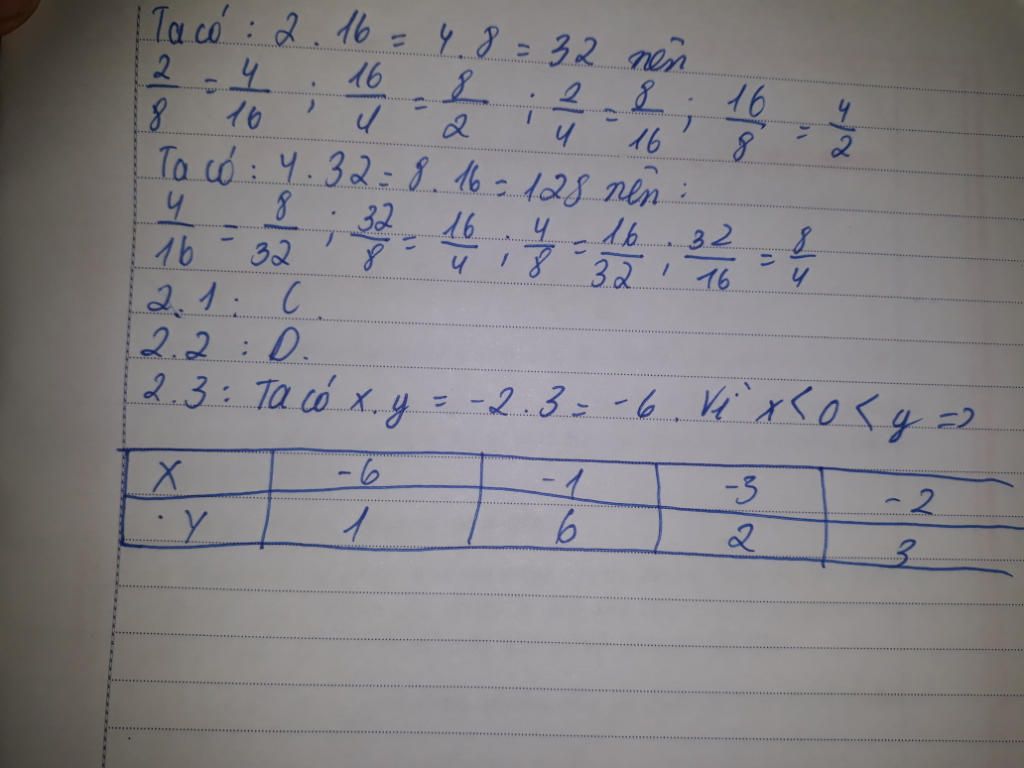 Ta có : 2 . 16 = 4 . 8 = 32 nên
2/8 = 4/16 ; 16/4 = 8/2 ; 2/4 = 8/16 ; 16/8 = 4/2
Ta có : 4 . 32 = 8 . 16 = 128 nên :
4/16 = 8/32 ; 32/8 = 16/4 ; 4/8 = 16/32 ; 32/16 = 8/4
2.1 : C.
2.2 : D.
2.3 : Ta có x.y = -2.3 = -6 . Vì x < 0 < y =>
X -6 -1 -3 -2
Y 1 6 2 3